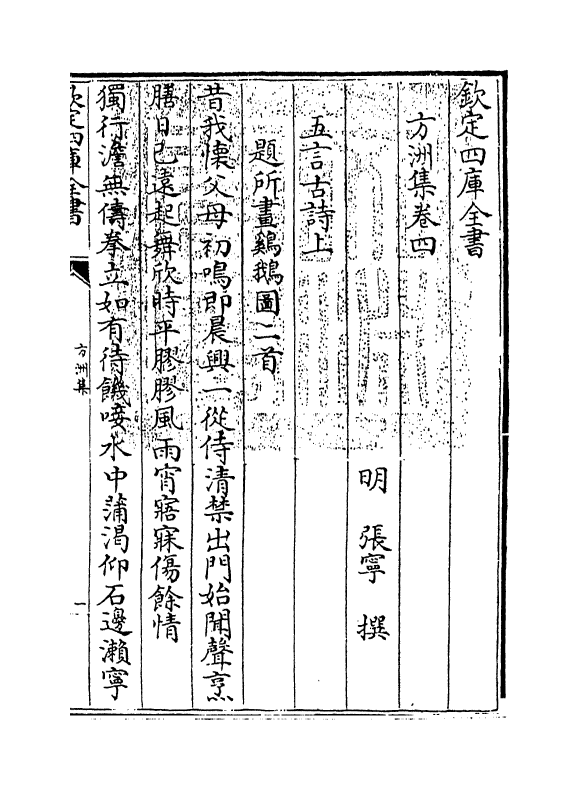 欽定四庫全書
方洲集卷四
明 張寧 撰
五言古詩上
題所畫鷄鵝圖二首
昔我懷父母初鳴即晨興一從侍清禁出門始聞聲烹
膳日已遠起舞欣時平膠膠風雨宵寤寐傷餘情
獨行澹無儔拳立如有待饑唼水中蒲渴仰石邊瀨寧
欽定四庫全書
方洲集
一